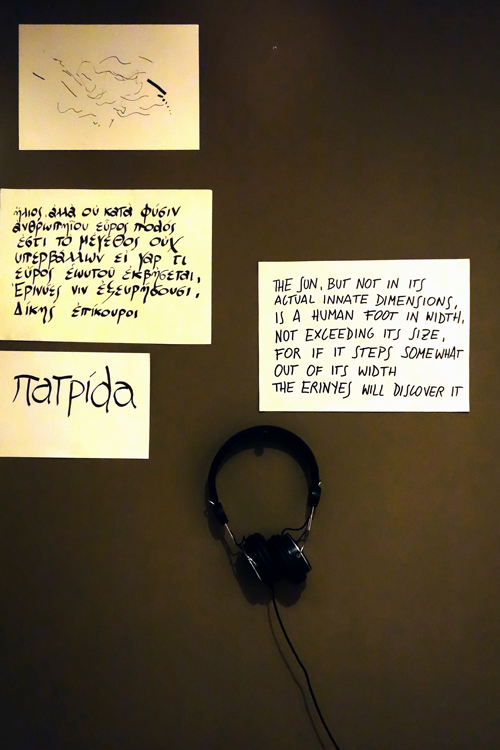 ἥλιος, ἀλλὰ οὐ κατὰ φύσιν
ἀνθρωπηίου εὖρος ποδὸς
ἐστὶ τὸ μέγεθος οὐχ
ὑπερβάλλων εἰ γάρ τι
εὖρος ἑωυτοῦ ἐκβήσεται,
Ἐρινύες νιν ἐξευρήσουσι,
Δίκης ἐπίκουροι
πατρίδα
THE SUN, BUT NOT IN ITS
ACTUAL INNATE DIMENSIONS,
IS A HUMAN FOOT IN WIDTH,
NOT EXCEEDING ITS SIZE,
FOR IF IT STEPS SOMEWHAT
OUT OF ITS WIDTH
THE ERINYES WILL DISCOVER IT